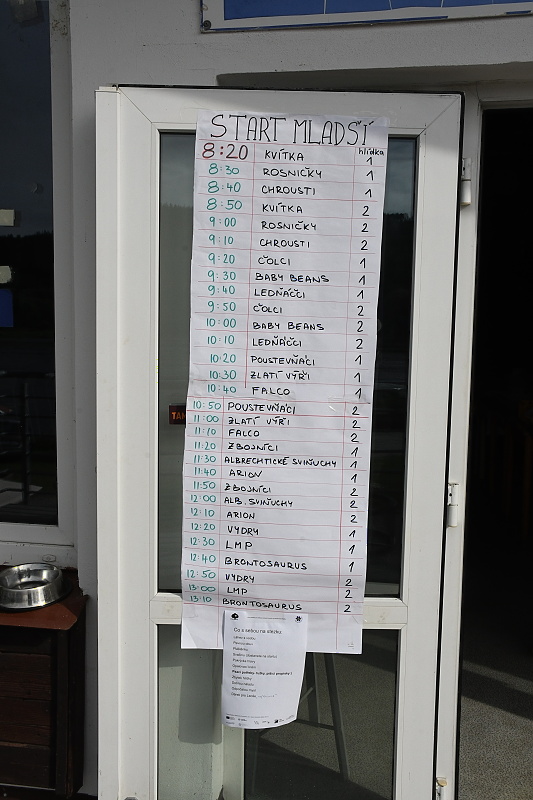 START MLADŠÍ
hlídka
8:20 KVÍTKA 1
8:30 ROSNIČKY 1
8:40 CHROUSTI 1
8:50 KVÍTKA 2
9:00 ROSNIČKY 2
9:10 CHROUSTI 2
9:20 ČOLCI 1
9:30 BABY BEANS 1
9:40 LEDŇÁČCI 1
9:50 ČOLCI 2
10:00 BABY BEANS 2
10:10 LEDŇÁČCI 2
10:20 POUSTEVŇÁCI 1
10:30 ZLATÍ VÝŘI 1
10:40 FALCO 1
10:50 POUSTEVŇÁCI 2
11:00 ZLATÍ VÝŘI 2
11:10 FALCO 2
11:20 ZBOJNÍCI 1
11:30 ALBRECHTICKÉ SVIŇUCHY 1
11:40 ARION 1
11:50 ZBOJNÍCI 2
12:00 ALB. SVIŇUCHY 2
12:10 ARION 2
12:20 VYDRY 1
12:30 LMP 1
12:40 BRONTOSAURUS 1
12:50 VYDRY 2
13:00 LMP 2
13:10 BRONTOSAURUS 2
Co s sebou na stezku: